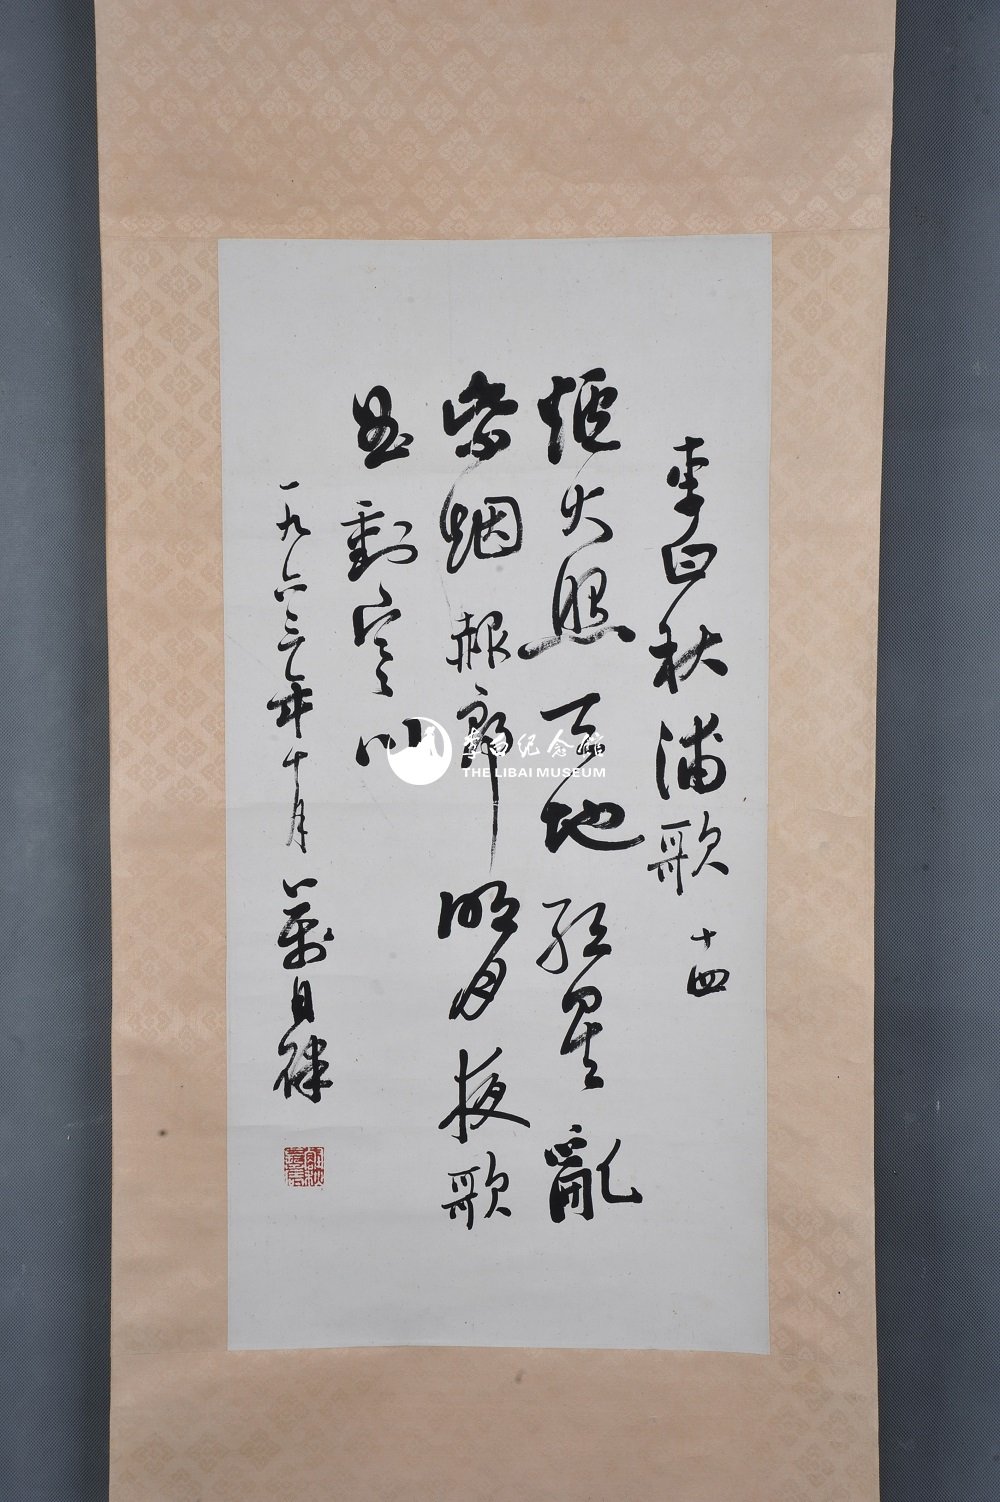 李白秋浦歌 十四
炉火照天地紅星亂
紫烟赧郎明月夜歌
曲動寒川
一九六三年十月 萬自律
李白纪念館
THE LIBAI MUSEUM